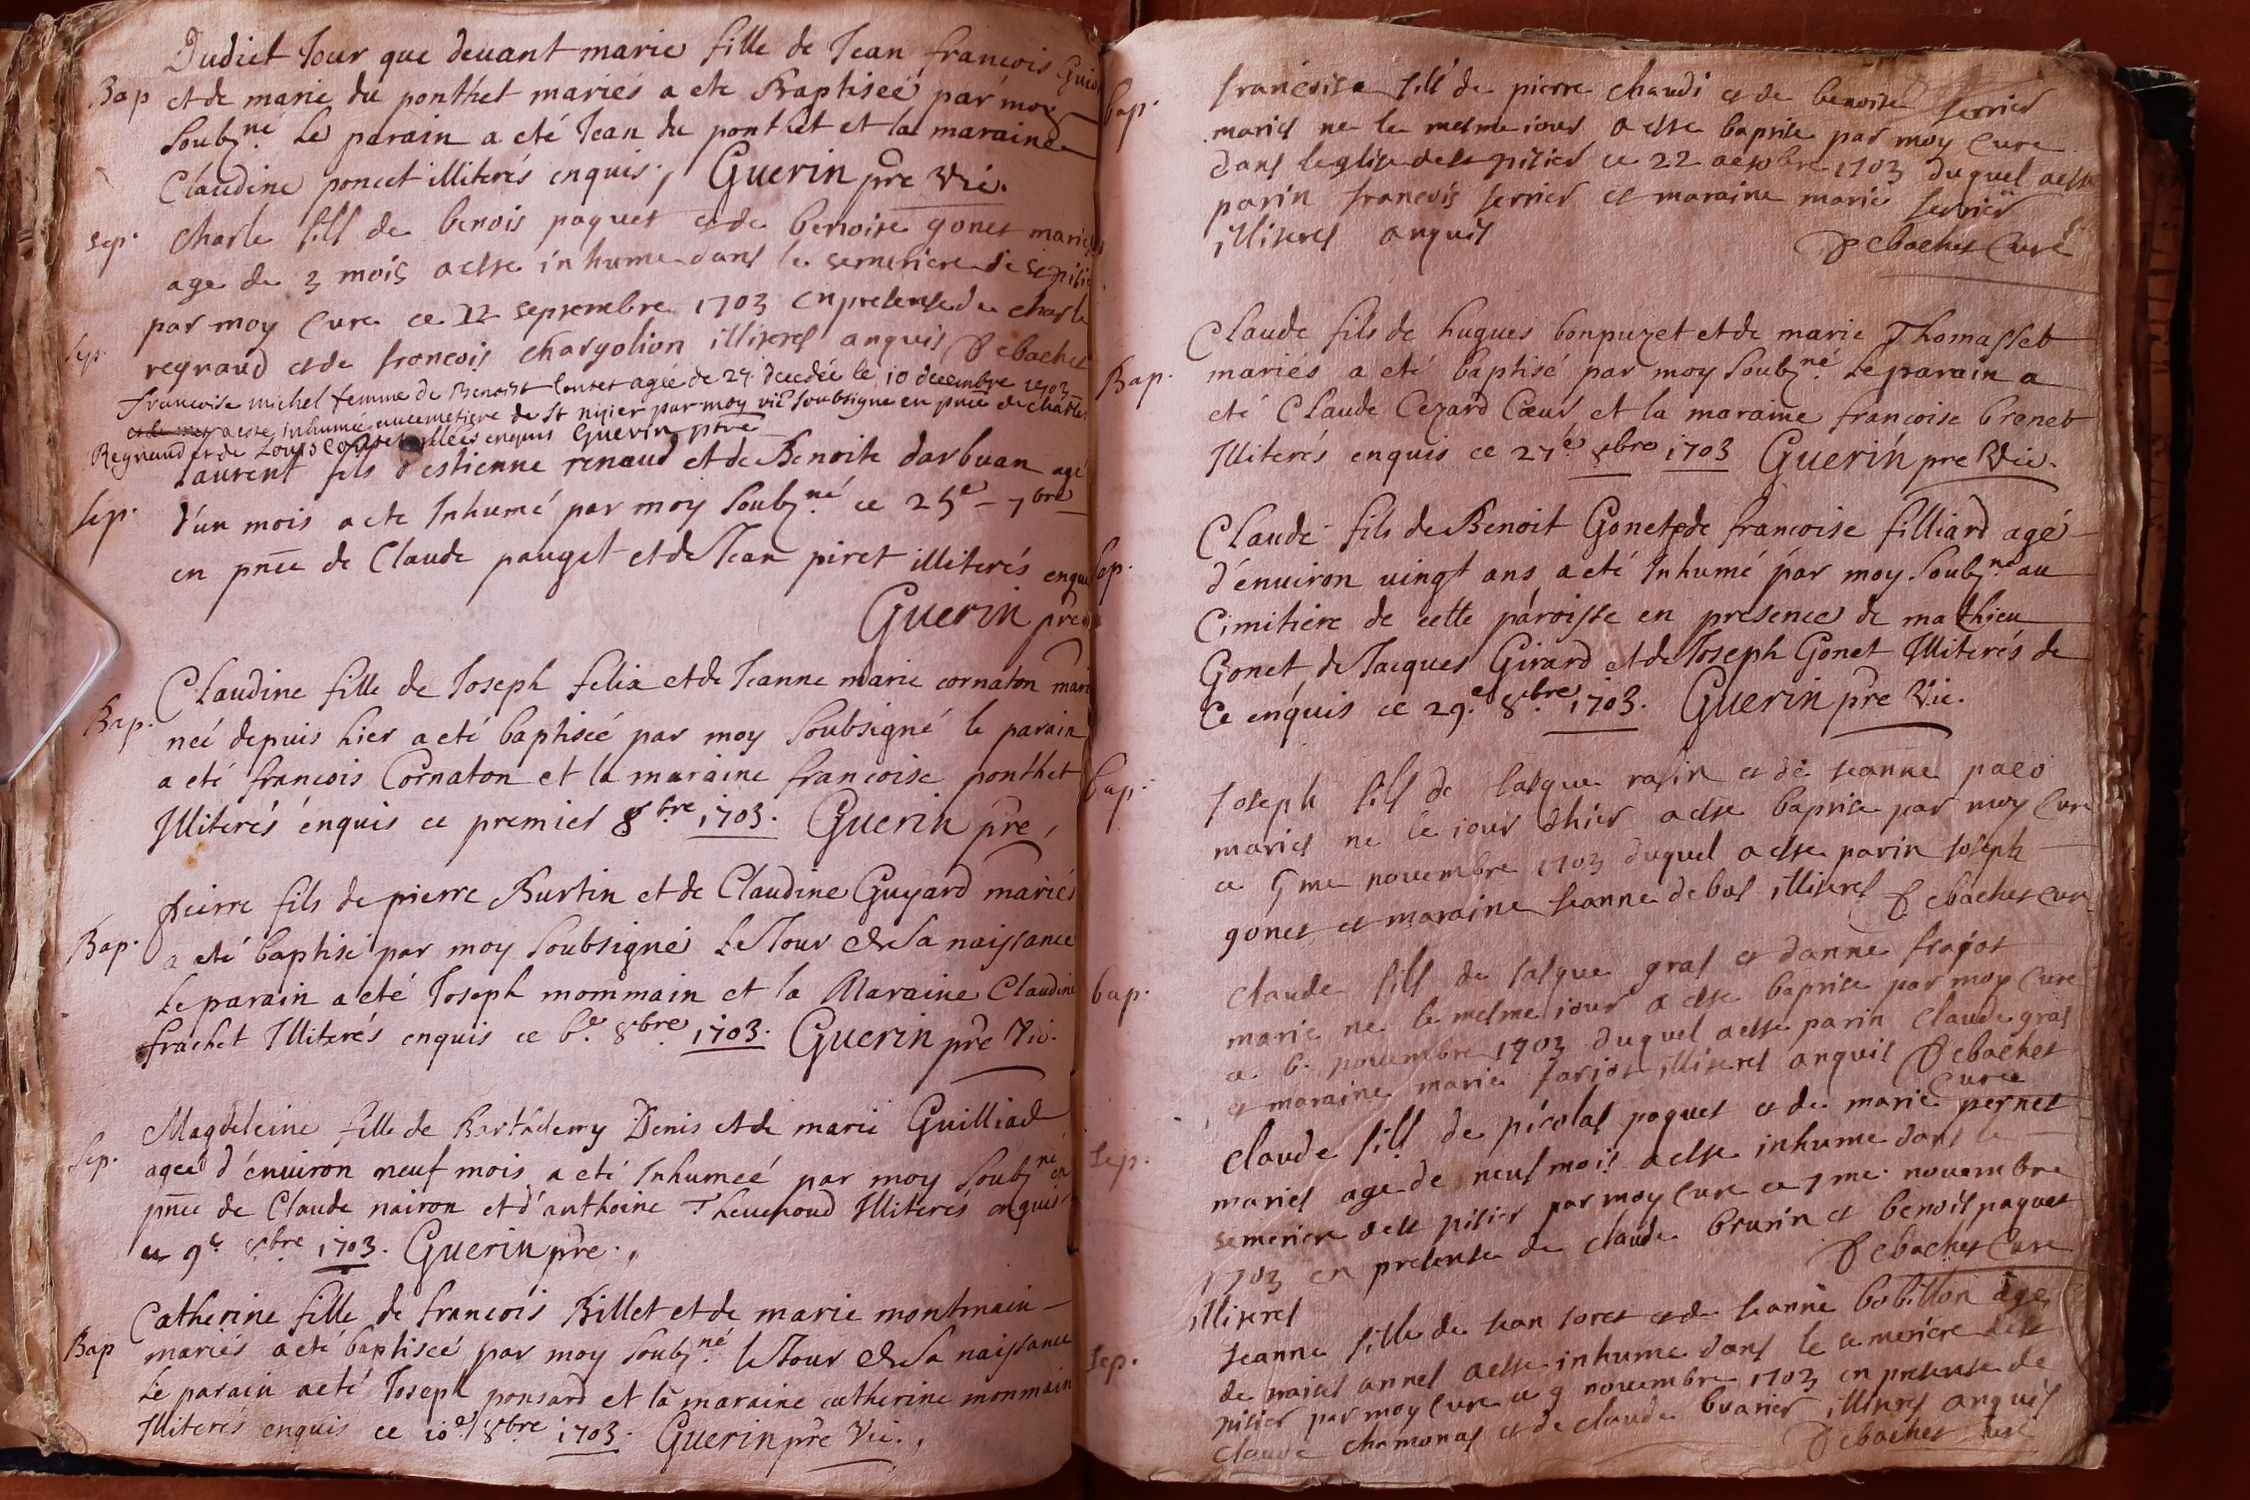 Dudict Jour que devant marie fille de Jean francois Guio
Bap et de marie du ponthet mariés a ete Baptiseé par moy
soubz.né Le parain a eté Jean du ponthet et la maraine
Claudine poncet illiterés enquis, Guerin pre Vic.
sep. Charle fill de benois paquet et de benoite gonet maries
age de 3 mois a este inhume dans le semetiere de
par moy Cure ce 22 septembre 1703 en presense de charle
sep. regnaud et de francois chargolion illiteres anquis Debachet
francoise michel femme de Benoist Contet agée de 24. decedée le 10 decembre 1703
a esté Inhumée au cemetiere de St nizier par moy vic soubsigne en pnce de charle
Regnaud et de Louis Contet illités enquis Guerin ptre
Laurent fils d'estienne renaud et de Benoite darbuan agé
sep. d'un mois a ete Inhumé par moy soubz.né ce 25e - 7bre
en pnce de Claude pauget et de Jean piret illiterés enqui
Guerin pre
Claudine fille de Joseph felix et de Jeanne marie cornaton mari
Bap. neé depuis hier a eté baptiseé par moy soubsigné le parain
a eté francois Cornaton et la maraine francoise ponthet
Illiterés énquis ce premier 8.bre 1703. Guerin pre,
pierre fils de pierre Burtin et de Claudine Guyard mariés
Bap. a eté baptisé par moy soubsigné Le Jour de sa naissance
Le parain a eté Joseph mommain et la Maraine Claudine
frachet Illiterés enquis ce 6.e 8bre 1703. Guerin pre Vic.
Magdeleine fille de Barthelemy Denis et de marie Guilliad
sep. ageé d'énuirón neuf mois a eté Inhumeé par moy soubz.né en
pnce de Claude nairon et d'anthoine Theuenoud Illiterés enquis
ce 9e 8bre 1703. Guerin pre.,
Catherine fille de francois Billet et de marie montmain
Bap mariés a eté baptiseé par moy soubz.né le Jour de sa naissance
Le parain a eté Joseph ponsard et la maraine catherine monmain
Illiterés enquis ce 10e 8bre 1703. Guerin pre Vic.,
bap. francoise fill de pierre chaudi et de benoite ferrier
maries ne le mesme iour a este baptise par moy Cure
dans leglise de st nisier ce 22 octobre 1703 duquel a este
parin francois ferrier et maraine marie ferrier
illiteres anquis Debachet Curé
Claude fils de hugues bonpuzet et de marie Thomasset
Bap. mariés a eté baptisé par moy soubz.né Le parain a
eté Claude Cezard Cœur et la maraine francoise branet
Illiterés enquis ce 27e 8bre 1703 Guerin pre Vic.
Claude fils de Benoit Gonet et de francoise filliard agé
sep. d'énuiron uingt ans a eté Inhumé par moy soubz.né au
Cimitiere de cette paroisse en presence de mathieu
Gonet, de Jacques Girard et de Joseph Gonet Illiterés de
Ce enquis ce 29e. 8.bre 1703. Guerin pre Vic.
bap. Joseph fils de Jasque rasin et de Jeanne paco
maries ne le iour dhier a este baptise par moy Cure
ce 5me nouembre 1703 duquel a este parin Joseph
gonet et maraine Jeanne debos illiteres Debachet Cure
bap. claude fill de Jasque gras et danne frajot
marie ne le mesme iour a este baptise par moy Cure
ce 6. nouembre 1703 duquel a este parin claude gras
et maraine marie illiteres anquis Debachet
Cure
Claude fill de nicolas paquet et de marie pernet
sep. maries age de neuf mois a este inhume dans le
semetiere de st nisier par moy Cure ce 7me nouembre
1703 en presense de claude brunin et benois paquet
illiteres Debachet Cure
Jeanne fille de Jean foret et de Jeanne bobillon age
sep. de annes a este inhume dans le cemetiere de st
nisier par moy Cure ce 9 nouembre 1703 en presense de
claude chamonas et de claude illiteres anquis
Debachet Cure